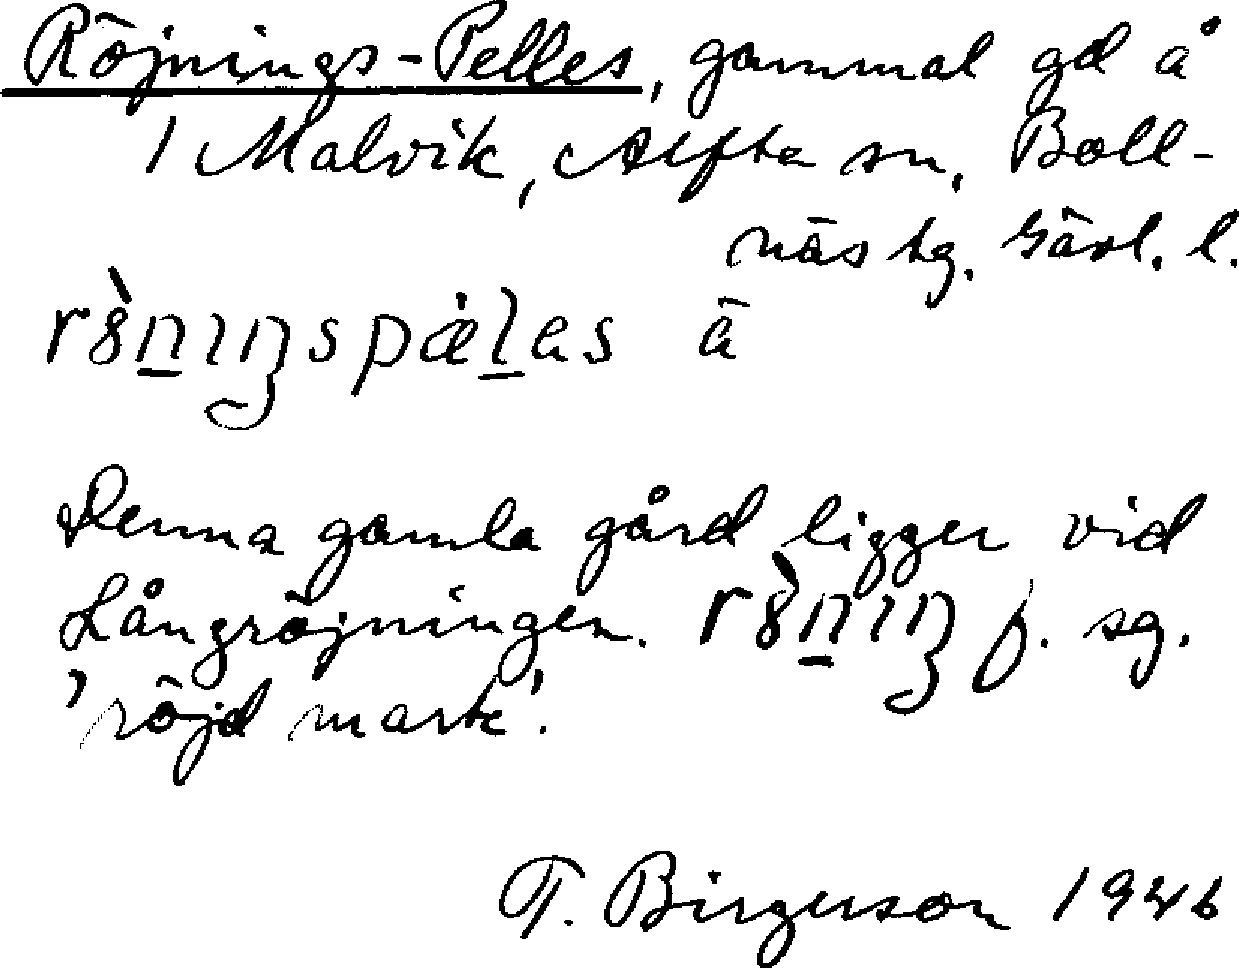 Röjnings-Pelles, gammal gd å
1 Malvik, Alfta sn, Boll-
näs tg. Gävl. l.
rȣ̀n̲ıŋspæ̇l̲as ä
Denna gamla gård ligger vid
Långröjningen. rȣ̀n̲ıŋ f. sg.
'röjd mark'.
T. Birgerson 1946